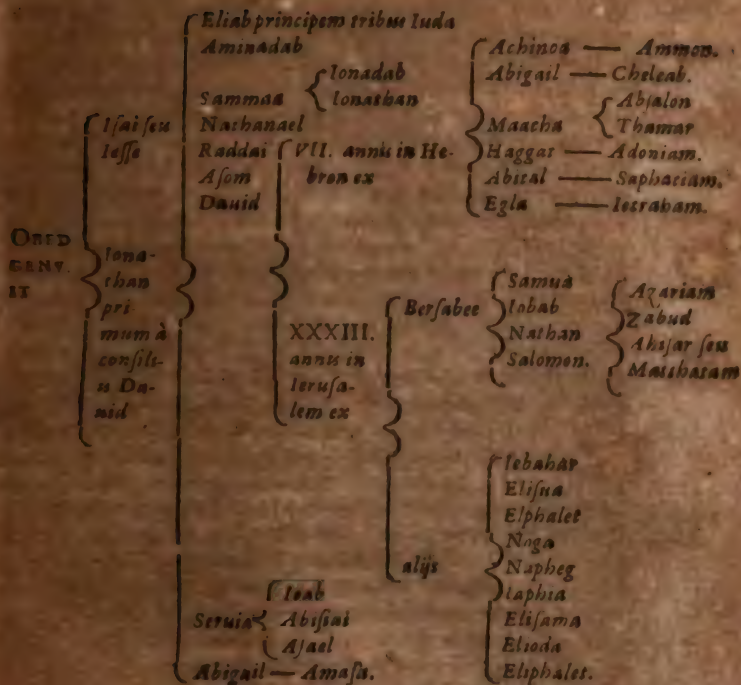 OBED
GENV.
IT
Iſai ſeu
Ieſſe
Iona-
than
pri
mum à
conſili-
is Da-
uid
Eliab principem tribus Iuda
Aminadab
Sammaa
Ionadab
Ionathan
Nathanael
Raddai
Aſom
Dauid
VII. annis in He-
bron ex
Achinoa — Ammon.
Abigail — Cheleab.
Maacha
Abſalon
Thamar
Haggat — Adoniam.
Abital — Saphatiam.
Egla — Ietraham.
XXXIII.
annis in
Ieruſa-
lem ex
Berſabee
Samua
Iobab
Nathan
Salomon.
Azariam
Zabud
Ahiſar ſeu
Matthatam
alijs
Iebahar
Eliſua
Elphalet
Noga
Napheg
Iaphia
Eliſama
Elioda
Eliphalet.
Seruia
Ioab
Abiſiai
Aſael
Abigail — Amaſa.